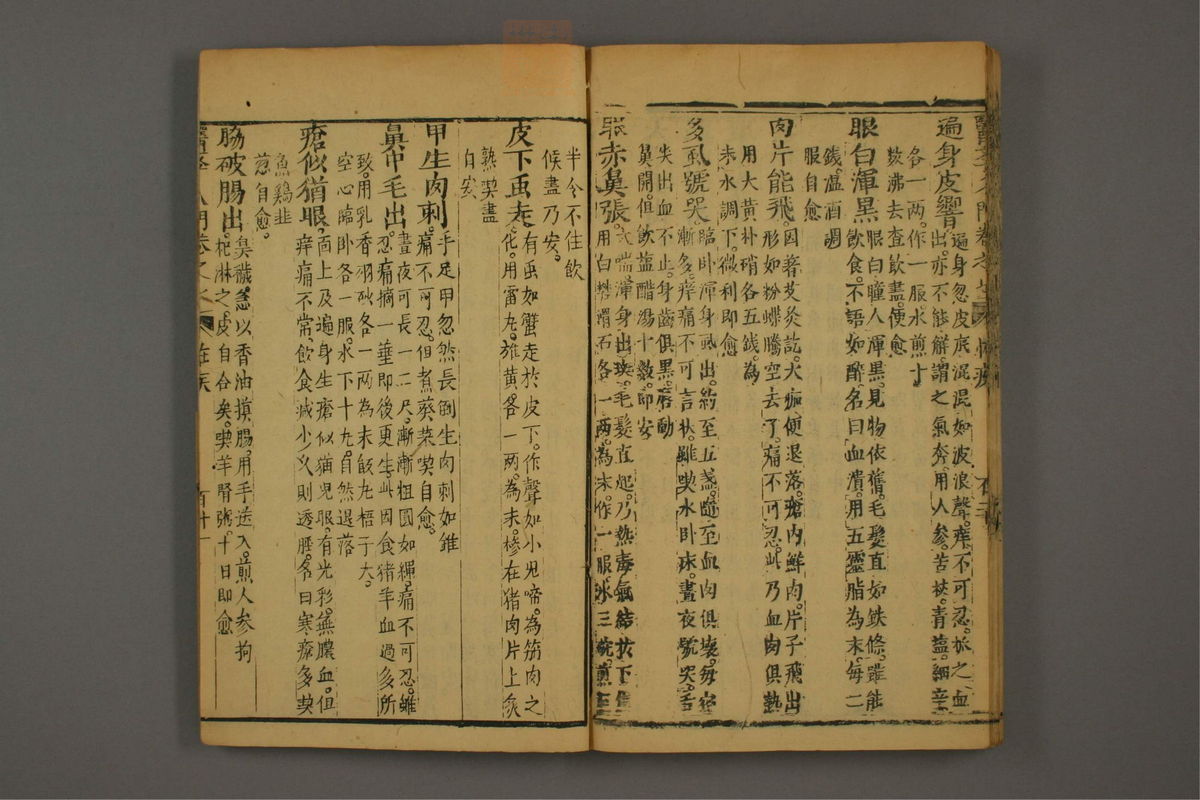 遍身皮響遍身忽皮底混混如波浪聲。痒不可忍。抓之血
出。亦不能解。謂之氣奔。用人參。苦杖。青鹽。細辛。
各一兩。作一服水煎十
數沸去查飲盡。便愈
眼白渾黑眼白瞳人渾黑。見物依舊。毛髮直如鉄條。雖能
飲食。不語如醉名曰血潰。用五靈脂為末。每二
錢。溫酒調
服自愈
肉片能飛因著艾灸訖。火痂便退落。瘡內鮮肉片子飛出
形如粉蝶騰空去了。痛不可忍。此乃血肉俱熱
用大黃朴硝各五錢。為
末水調下。微利即愈
多虱號哭臨卧渾身虱出。約至五盞。隨至血肉俱壞。每宿
漸多。痒痛不可言狀。雖喫水卧床。晝夜號哭。舌
尖出血不止。身齒俱黑。唇動
鼻開。但飲鹽醋湯十數。即安
眼赤鼻張大喘。渾身出斑。毛髮直起。乃熱毒氣結於下焦
用白礬滑石各一兩。為末。作一服。水三碗。煎至
半令不住飲
候盡乃安。
皮下䖝走有䖝如蟹走於皮下。作聲如小兒啼。為筋肉之
化。用雷丸。雄黃各一兩。為末。摻在猪肉片上炙
熟喫盡
自安
甲生肉刺手足甲忽然長倒生肉刺如錐
痛不可忍。但煮葵菜喫自愈。
鼻中毛出晝夜可長一二尺。漸漸粗圓如繩。痛不可忍。雖
忍痛摘一莖即後更生。此因食猪羊血過多所
致。用乳香硇砂各一兩為末飯丸梧子大。
空心臨卧各一服。水下十丸。自然退落
瘡似猫眼面上及遍身生瘡似猫兒眼。有光彩。無膿血。但
痒痛不常。飲食減少。久則透脛。名曰寒瘡。多喫
魚鷄韭
葱自愈。
脇破腸出臭穢。急以香油摸腸。用手送入。煎人參枸
杞淋之。皮自合矣。喫羊腎粥。十日即愈